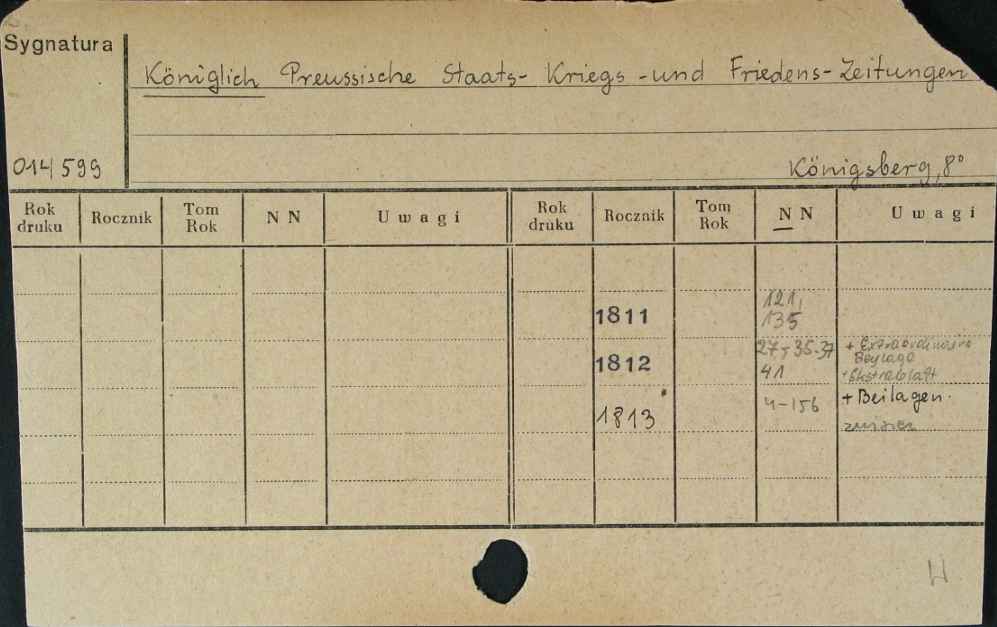 Sygnatura
Königlich Preussische Staats- Kriegs -und Friedens-Zeitungen
014599
Königsberg, 8°
Rok druku Rocznik Tom Rok N N Uwagi Rok druku Rocznik Tom Rok N N Uwagi
121,
1811 135
27, 35-37 + Extraordinäre
Beylage
1812 41 + Ekstrablatt
1813 4-156 + Beilagen